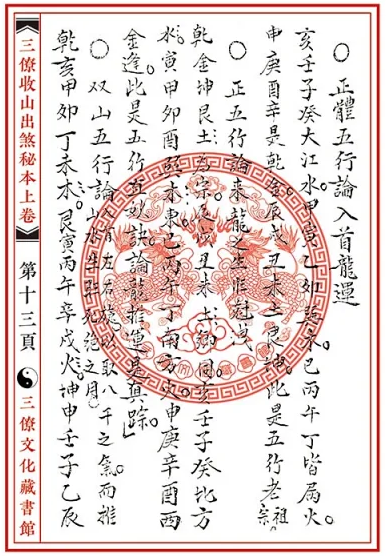 ○正體五行論入首龍運
亥壬子癸大江水。甲寅乙卯巽木。巳丙午丁皆屬火
申庚酉辛是乾金。辰戌丑未土艮坤。此是五行老祖宗
○正五行論來龍之生旺尅洩
乾金坤艮土為宗。辰戌丑未土 同。亥壬子癸北方
水。寅甲卯 巽木東。巳丙午丁南方火。申庚辛酉酉
金逢。此是五行 妙訣。論龍推運是真踪。
○双山五行論 左右 以取八干之氣。而推山水生旺死絕之用。
乾亥甲卯丁未木。艮寅丙午辛戌火。坤申壬子乙辰
《三僚收山出煞秘本上卷》 第十三頁 三僚文化藏書館